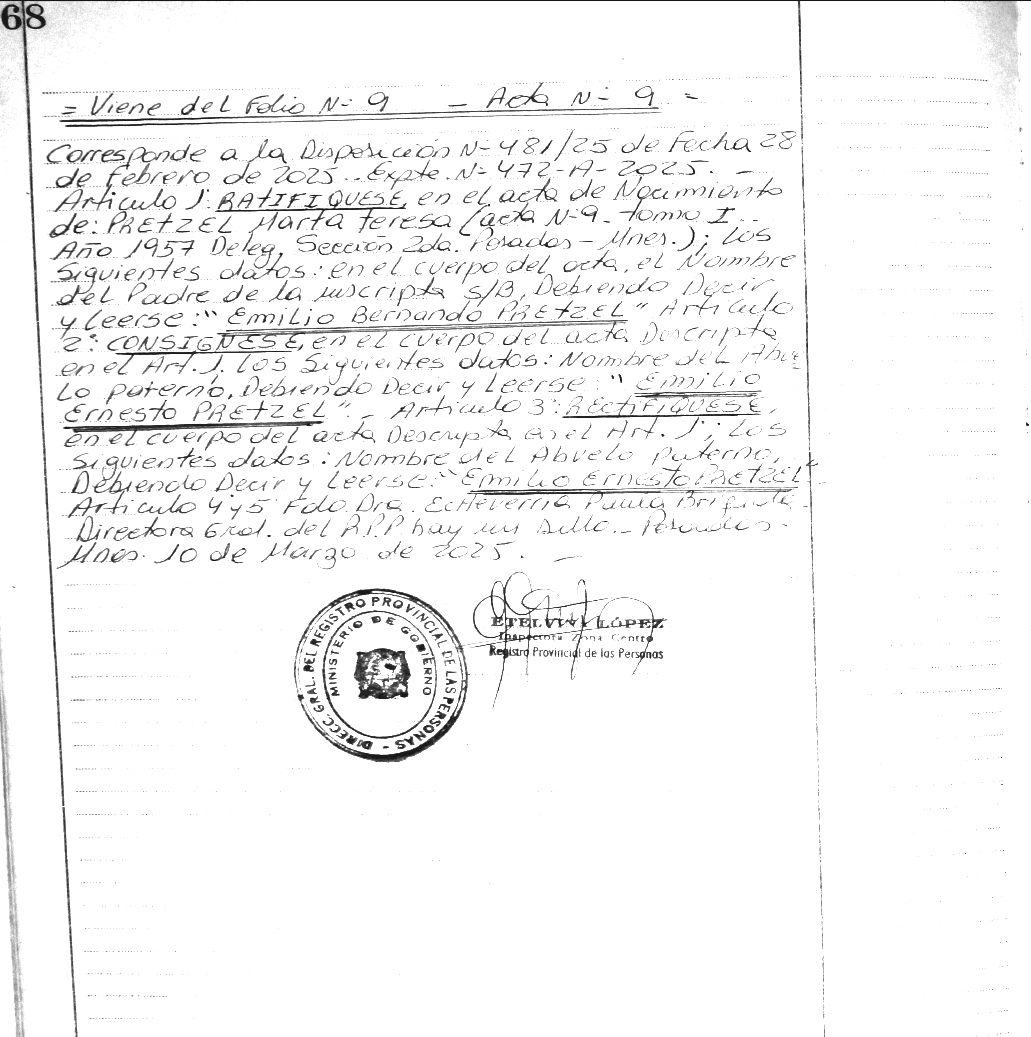 68
= Viene del Folio N- 9 - Acta N- 9 =
Corresponde a la Disposición N- 481/25 de Fecha 28
de febrero de 2025.. Expte. N- 472-A-2025. -
Articulo 1: RATIFIQUESE, en el acta de Nacimiento
de: PRETZEL Marta Teresa (acta N-9- tomo I..
Año 1957 Deleg. Sección 2da. Posadas - Mnes.); Los
Siguientes datos: en el cuerpo del acta, el Nombre
del Padre de la suscripta S/B, Debiendo Decir
y Leerse: "Emilio Bernando PRETZEL" Artículo
2°: CONSIGNESE, en el cuerpo del acta Descripta
en el Art. 1. Los Siguientes datos: Nombre del Abue
Lo paterno, Debiendo Decir y Leerse: "Emilio
Ernesto PRETZEL". - Artículo 3°: RECTIFIQUESE,
en el cuerpo del acta Descripta en el Art. 1; Los
Siguientes datos: Nombre del Abuelo paterno,
Debiendo Decir y Leerse: "Emilio Ernesto PRETZEL"
Articulo 4 y 5 Fdo. Dra. Echeverria Paula Brigida
Directora Gral. del R.P.P hay un sello.- Posadas -
Mnes. 10 de Marzo de 2025. -
DIRECC. GRAL. DEL REGISTRO PROVINCIAL DE LAS PERSONAS -
MINISTERIO DE GOBIERNO
ETELVINA LÓPEZ
Inspectora Zona Centro
Registro Provincial de las Personas